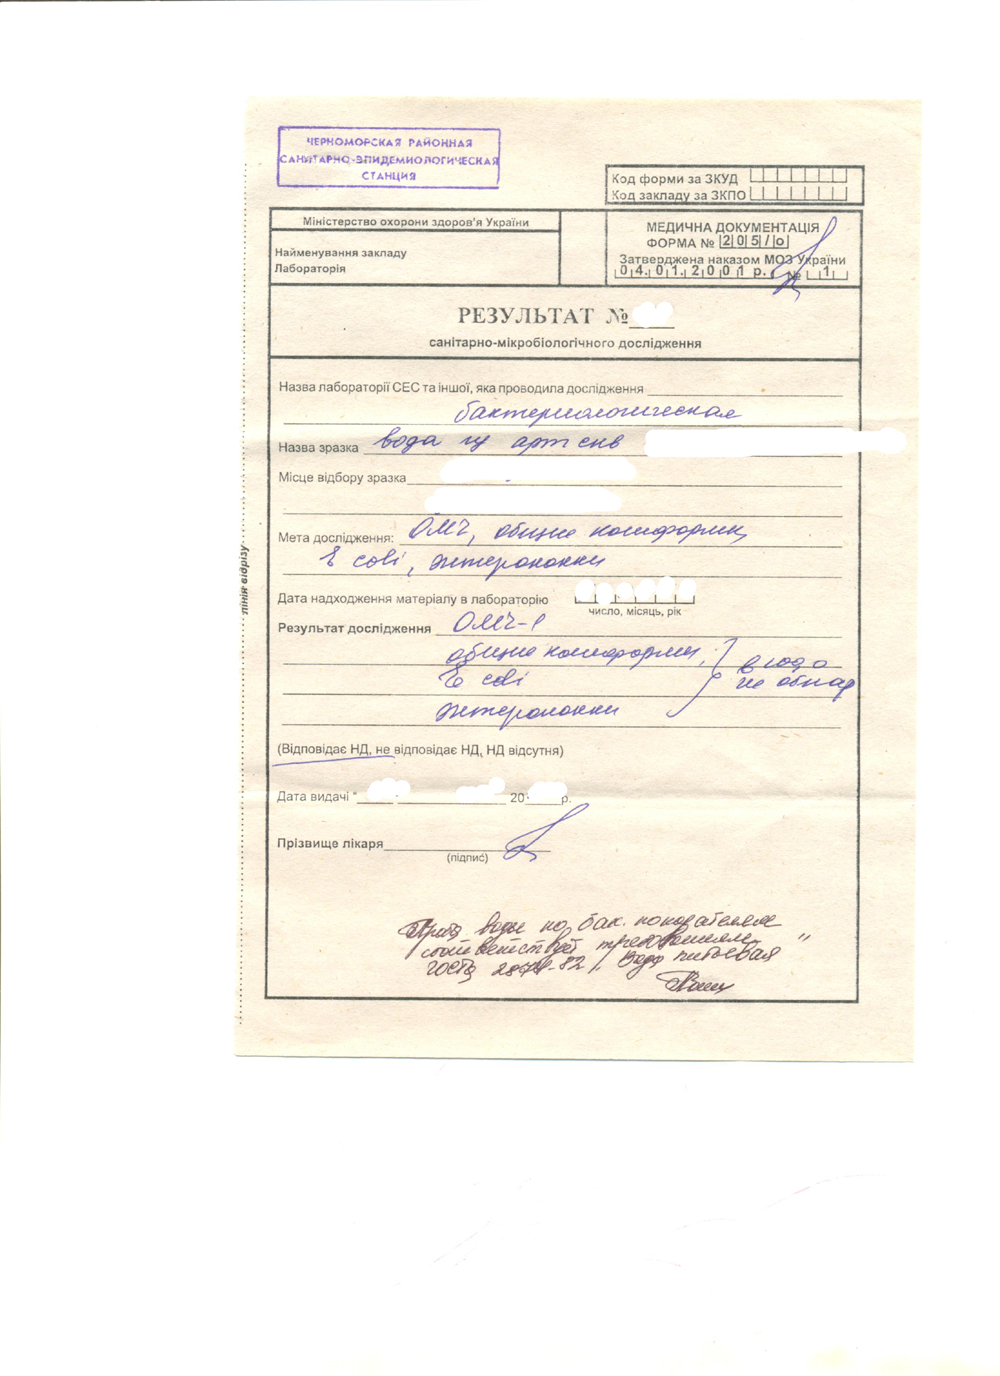 ЧЕРНОМОРСКАЯ РАЙОННАЯ
САНИТАРНО-ЭПИДЕМИОЛОГИЧЕСКАЯ
СТАНЦИЯ
Код форми за ЗКУД
Код закладу за ЗКПО
Міністерство охорони здоров'я України
Найменування закладу
Лабораторія
МЕДИЧНА ДОКУМЕНТАЦІЯ
ФОРМА № 205/о
Затверджена наказом МОЗ України
04.01.2001 р. № 1
РЕЗУЛЬТАТ №
санітарно-мікробіологічного дослідження
Назва лабораторії СЕС та іншої, яка проводила дослідження
бактериологическая
Назва зразка вода из арт скв
Місце відбору зразка
Мета дослідження: ОМЧ, общие колиформы,
E coli, энтерококки
Дата надходження матеріалу в лабораторію
число, місяць, рік
Результат дослідження ОМЧ-1
общие колиформы,
в воде
E coli
не обнар
энтерококки
(Відповідає НД, не відповідає НД, НД відсутня)
Дата видачі " 20 р.
Прізвище лікаря
(підпис)
лінія відрізу
Проба воды по бак. показателям
соответствует требованиям
ГОСТа 2874-82 "Вода питьевая"